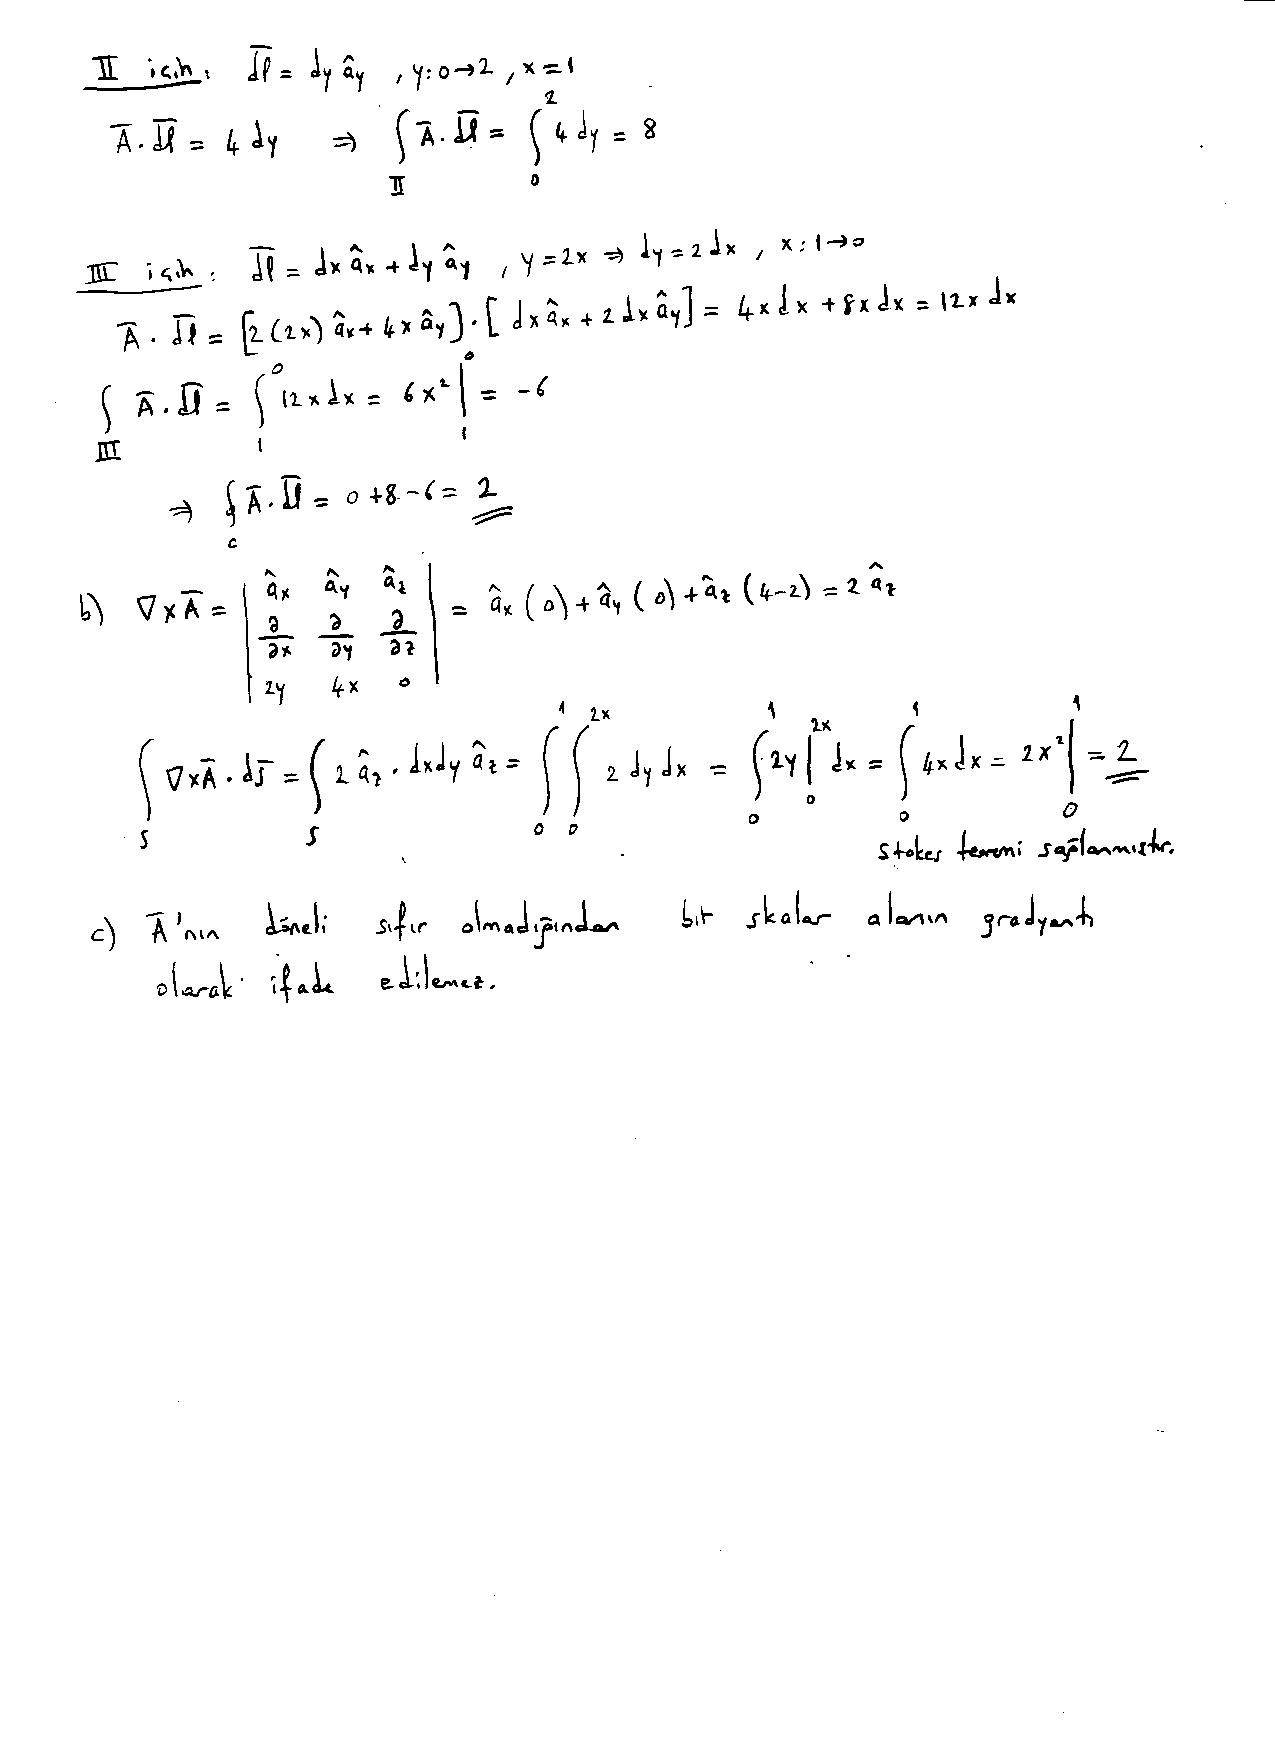 II için: d̅l̅ = dy ây , y: 0→2 , x=1
A̅.d̅l̅ = 4 dy ⇒ ∫_II A̅.d̅l̅ = ∫_0^2 4 dy = 8
III için: d̅l̅ = dx âx + dy ây , y=2x ⇒ dy=2dx , x: 1→0
A̅.d̅l̅ = [2(2x) âx + 4x ây].[dx âx + 2dx ây] = 4x dx + 8x dx = 12x dx
∫_III A̅.d̅l̅ = ∫_1^0 12x dx = 6x² |_1^0 = -6
⇒ ∮_c A̅.d̅l̅ = 0+8-6 = 2
b) ∇xA̅ = | âx ây âz ; ∂/∂x ∂/∂y ∂/∂z ; 2y 4x 0 | = âx(0) + ây(0) + âz(4-2) = 2 âz
∫_S ∇xA̅.ds̅ = ∫_S 2 âz . dxdy âz = ∫_0^1 ∫_0^2x 2 dy dx = ∫_0^1 2y |_0^2x dx = ∫_0^1 4x dx = 2x² |_0^1 = 2
Stokes teoremi sağlanmıştır.
c) A̅'nın döneli sıfır olmadığından bir skalar alanın gradyanti
olarak ifade edilemez.